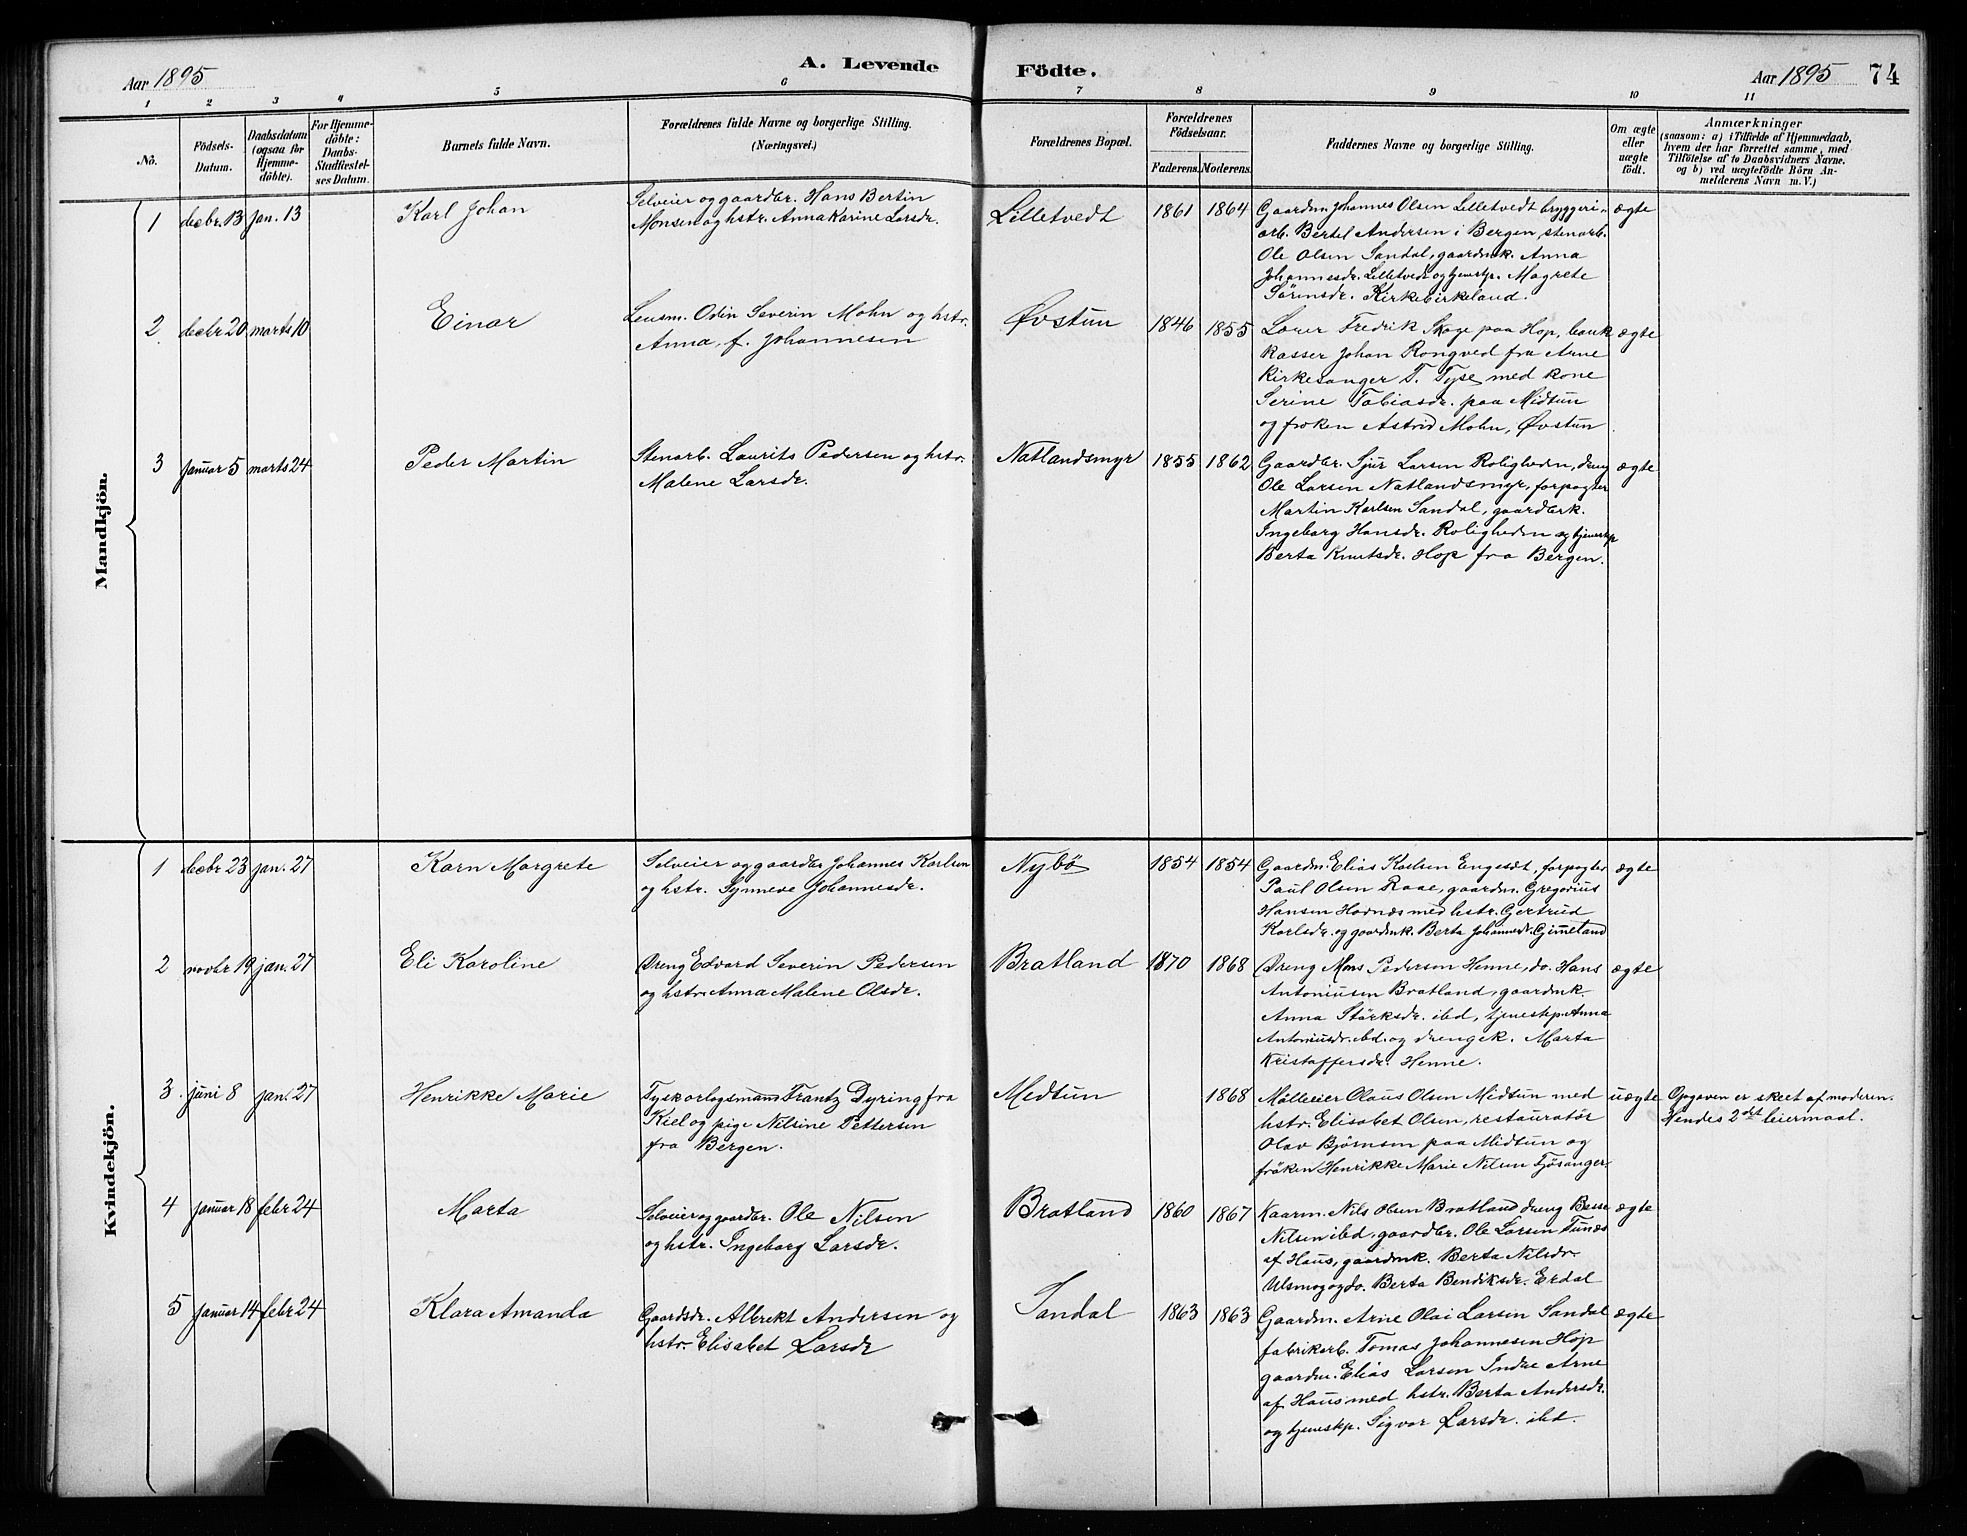 Aar 1895
A. Levende
Födte.
Aar 1895
74
1 2 3 4 5 6 7 8 9 10 11
No.
Födsels-
Datum.
Daabsdatum
(ogsaa for
Hjemme-
döbte).
For Hjemme-
döbte:
Daabs-
Stadfæstel-
ses Datum.
Barnets fulde Navn.
Forældrenes fulde Navne og borgerlige Stilling.
(Næringsvei.)
Forældrenes Bopæl.
Forældrenes
Födselsaar.
Faderens. Moderens.
Faddernes Navne og borgerlige Stilling.
Om ægte
eller
uægte
födt.
Anmærkninger
(saasom: a) i Tilfælde af Hjemmedaab,
hvem der har forrettet samme, med
Tilföielse af to Daabsvidners Navne.
og b) ved uægtefödte Börn An-
melderens Navn m. V.)
Mandkjön.
1 decbr. 13 jan. 13
Karl Johan
Selveier og gaardbr. Hans Bertin
Monsen og hstr. Anna Karine Larsdr.
Lilletvedt
1861 1864
Gaardm. Johannes Olsen Lilletvedt bryggeri-
arb. Bertel Andersen i Bergen, stenarb.
Ole Olsen Sandal, gaardmk. Anna
Johannesdr. Lilletvedt og tjenestp. Magrete
Sörensdr. Kirkebirkeland.
ægte
2 decbr 20 marts 10
Einar
Lensm. Odin Severin Mohn og hstr.
Anna, f. Johannesen
Øvstun
1846 1855
Lærer Fredrik Skage paa Hop, bank
kasser Johan Rongved fra Arne
Kirkesanger T. Tyse med kone
Serine Tobiasdr. paa Midtun
og frøken Astrid Mohn, Øvstun
ægte
3 januar 5 marts 24
Peder Martin
Stenarb. Laurits Pedersen og hstr.
Malene Larsdr.
Natlandsmyr
1855 1862
Gaardbr. Sjur Larsen Roligheden, dreng
Ole Larsen Natlandsmyr, forpagter
Martin Karlsen Sandal, gaardbrk.
Ingeborg Hansdr. Roligheden og tjenestp
Berta Knutsdr. Hop fra Bergen.
ægte
Kvindekjön.
1 decbr 23 jan. 27
Karn Margrete
Selveier og gaardbr Johannes Karlsen
og hstr. Synneve Johannesdr.
Nybø
1854 1854
Gaardm. Elias Karlsen Engesæt, forpagter
Paul Olsen Raae, gaardm. Gregorius
Hansen Hovnæs med hstr. Gertrud
Karlsdr. og gaardmk. Berta Johannesdr. Gjimeland
ægte
2 novbr 19 jan. 27
Eli Karoline
Dreng Edvard Severin Pedersen
og hstr. Anna Malene Olsdr.
Bratland
1870 1868
Dreng Mons Pedersen Henne, do. Hans
Antoniusen Bratland, gaardmk.
Anna Störksdr. ibd, tjenestp. Anna
Antoniusdr. ibd. og drengek. Marta
Kristaffersdr. Henne.
ægte
3 juni 8 jan. 27
Henrikke Marie
Tysk orlogsmand Frantz Dyring fra
Kiel og pige Nilsine Pettersen
fra Bergen.
Medtun
1868
Mölleeier Olaus Olsen Midtun med
hstr. Elisabet Olsen, restauratör
Olav Bjørnsen paa Midtun og
fröken Henrikke Marie Nilsen Fjösanger.
uægte
Opgaven er skeet af moderen.
Hendes 2det leiermaal.
4 januar 18 febr 24
Marta
Selveier og gaardbr. Ole Nilsen
og hstr. Ingeborg Larsdr.
Bratland
1860 1867
Kaarm. Nils Olsen Bratland dreng Besse
Nilsen ibd, gaardbr. Ole Larsen Tunæs
af Haus, gaardmk. Berta Nilsdr.
Ulsmog og do. Berta Bendiksdr. Erdal
ægte
5 januar 14 febr 24
Klara Amanda
Gaardsdr. Albrekt Andersen og
hstr. Elisabet Larsdr
Sandal
1863 1863
Gaardm. Arne Olai Larsen Sandal
fabrikarb. Tomas Johannesen Hop
gaardm. Elias Larsen Indre Arne
af Haus med hstr. Berta Andersdr.
og tjenestp. Sigvor Larsdr. ibd.
ægte